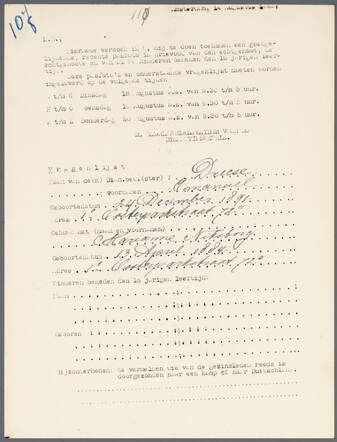 10%
118
Amsterdam, 14 Augustus 1942
L.S.,
Hiermede verzoek ik U, mij te doen toekomen een goedge-
lijkende, recente pasfoto in drievoud van den echtgenoot, de
echtgenoote en van elk kinderen beneden den 16 jarigen leef-
tijd.
Deze pasfoto's en onderstaande vragenlijst moeten worden
ingeleverd op de volgende tijden
A t/m G Dinsdag 18 Augustus a.s. van 9.30 t/m 5 uur.
H t/m O Woensdag 19 Augustus a.s. van 9.30 t/m 5 uur.
P t/m Z Donderdag 20 Augustus a.s. van 9.30 t/m 5 uur.
Vragenlijst
Naam van de(n) Dien.nee.(ster) :
voornamen : Emanuel
Geboortedatum : 24 December 1891.
Adres : 1e Oosterparkstraat
Gehuwd met (naam en voornamen)
Marianne
Geboortedatum : 13 April 1889.
Adres : 1e Oosterparkstraat
Kinderen beneden den 16 jarigen leeftijd:
Naam
Geboren
Bijzonderheden: te vermelden wie van de gezinsleden reeds is
doorgezonden naar een Kamp of naar Duitschland.